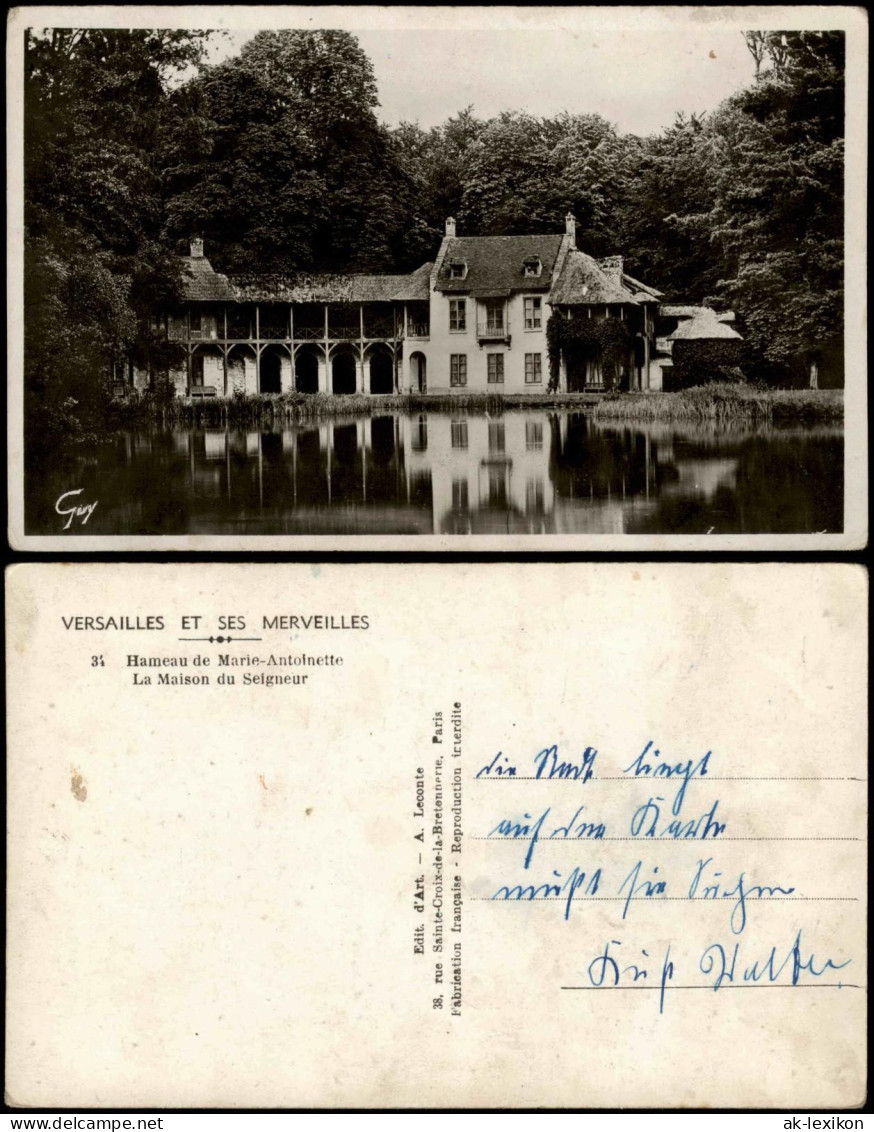 Givy
VERSAILLES ET SES MERVEILLES
34 Hameau de Marie-Antoinette
La Maison du Seigneur
Edit. d'Art. — A. Leconte
38, rue Sainte-Croix-de-la-Bretonnerie, Paris
Fabrication française - Reproduction interdite
die Stadt liegt
auf der Karte
müßt sie Suchen
Kuß Walter
ak-lexikon